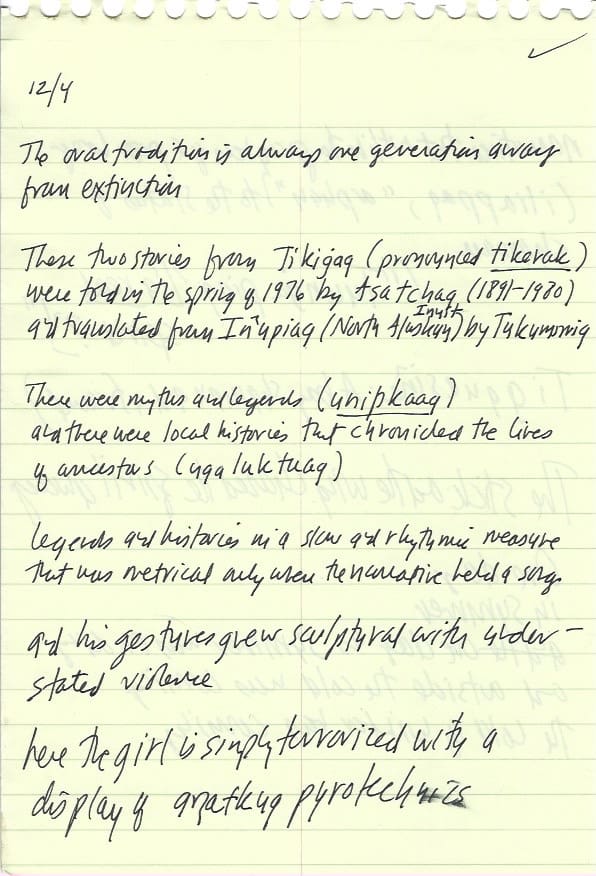 12/4
The oral tradition is always one generation away
from extinction
These two stories from Tikiġaq (pronounced tikerak)
were told in the spring of 1976 by Asatchaq (1891-1980)
and translated from Iñupiaq (North Alaskan Inuit) by Tukummiq
There were myths and legends (unipkaaq)
and there were local histories that chronicled the lives
of ancestors (uqaluktuaq)
legends and histories in a slow and rhythmic measure
that was metrical only when the narrative held a song
and his gestures grew sculptural with under-
stated violence
here the girl is simply terrorized with a
display of aŋatkuq pyrotechnics